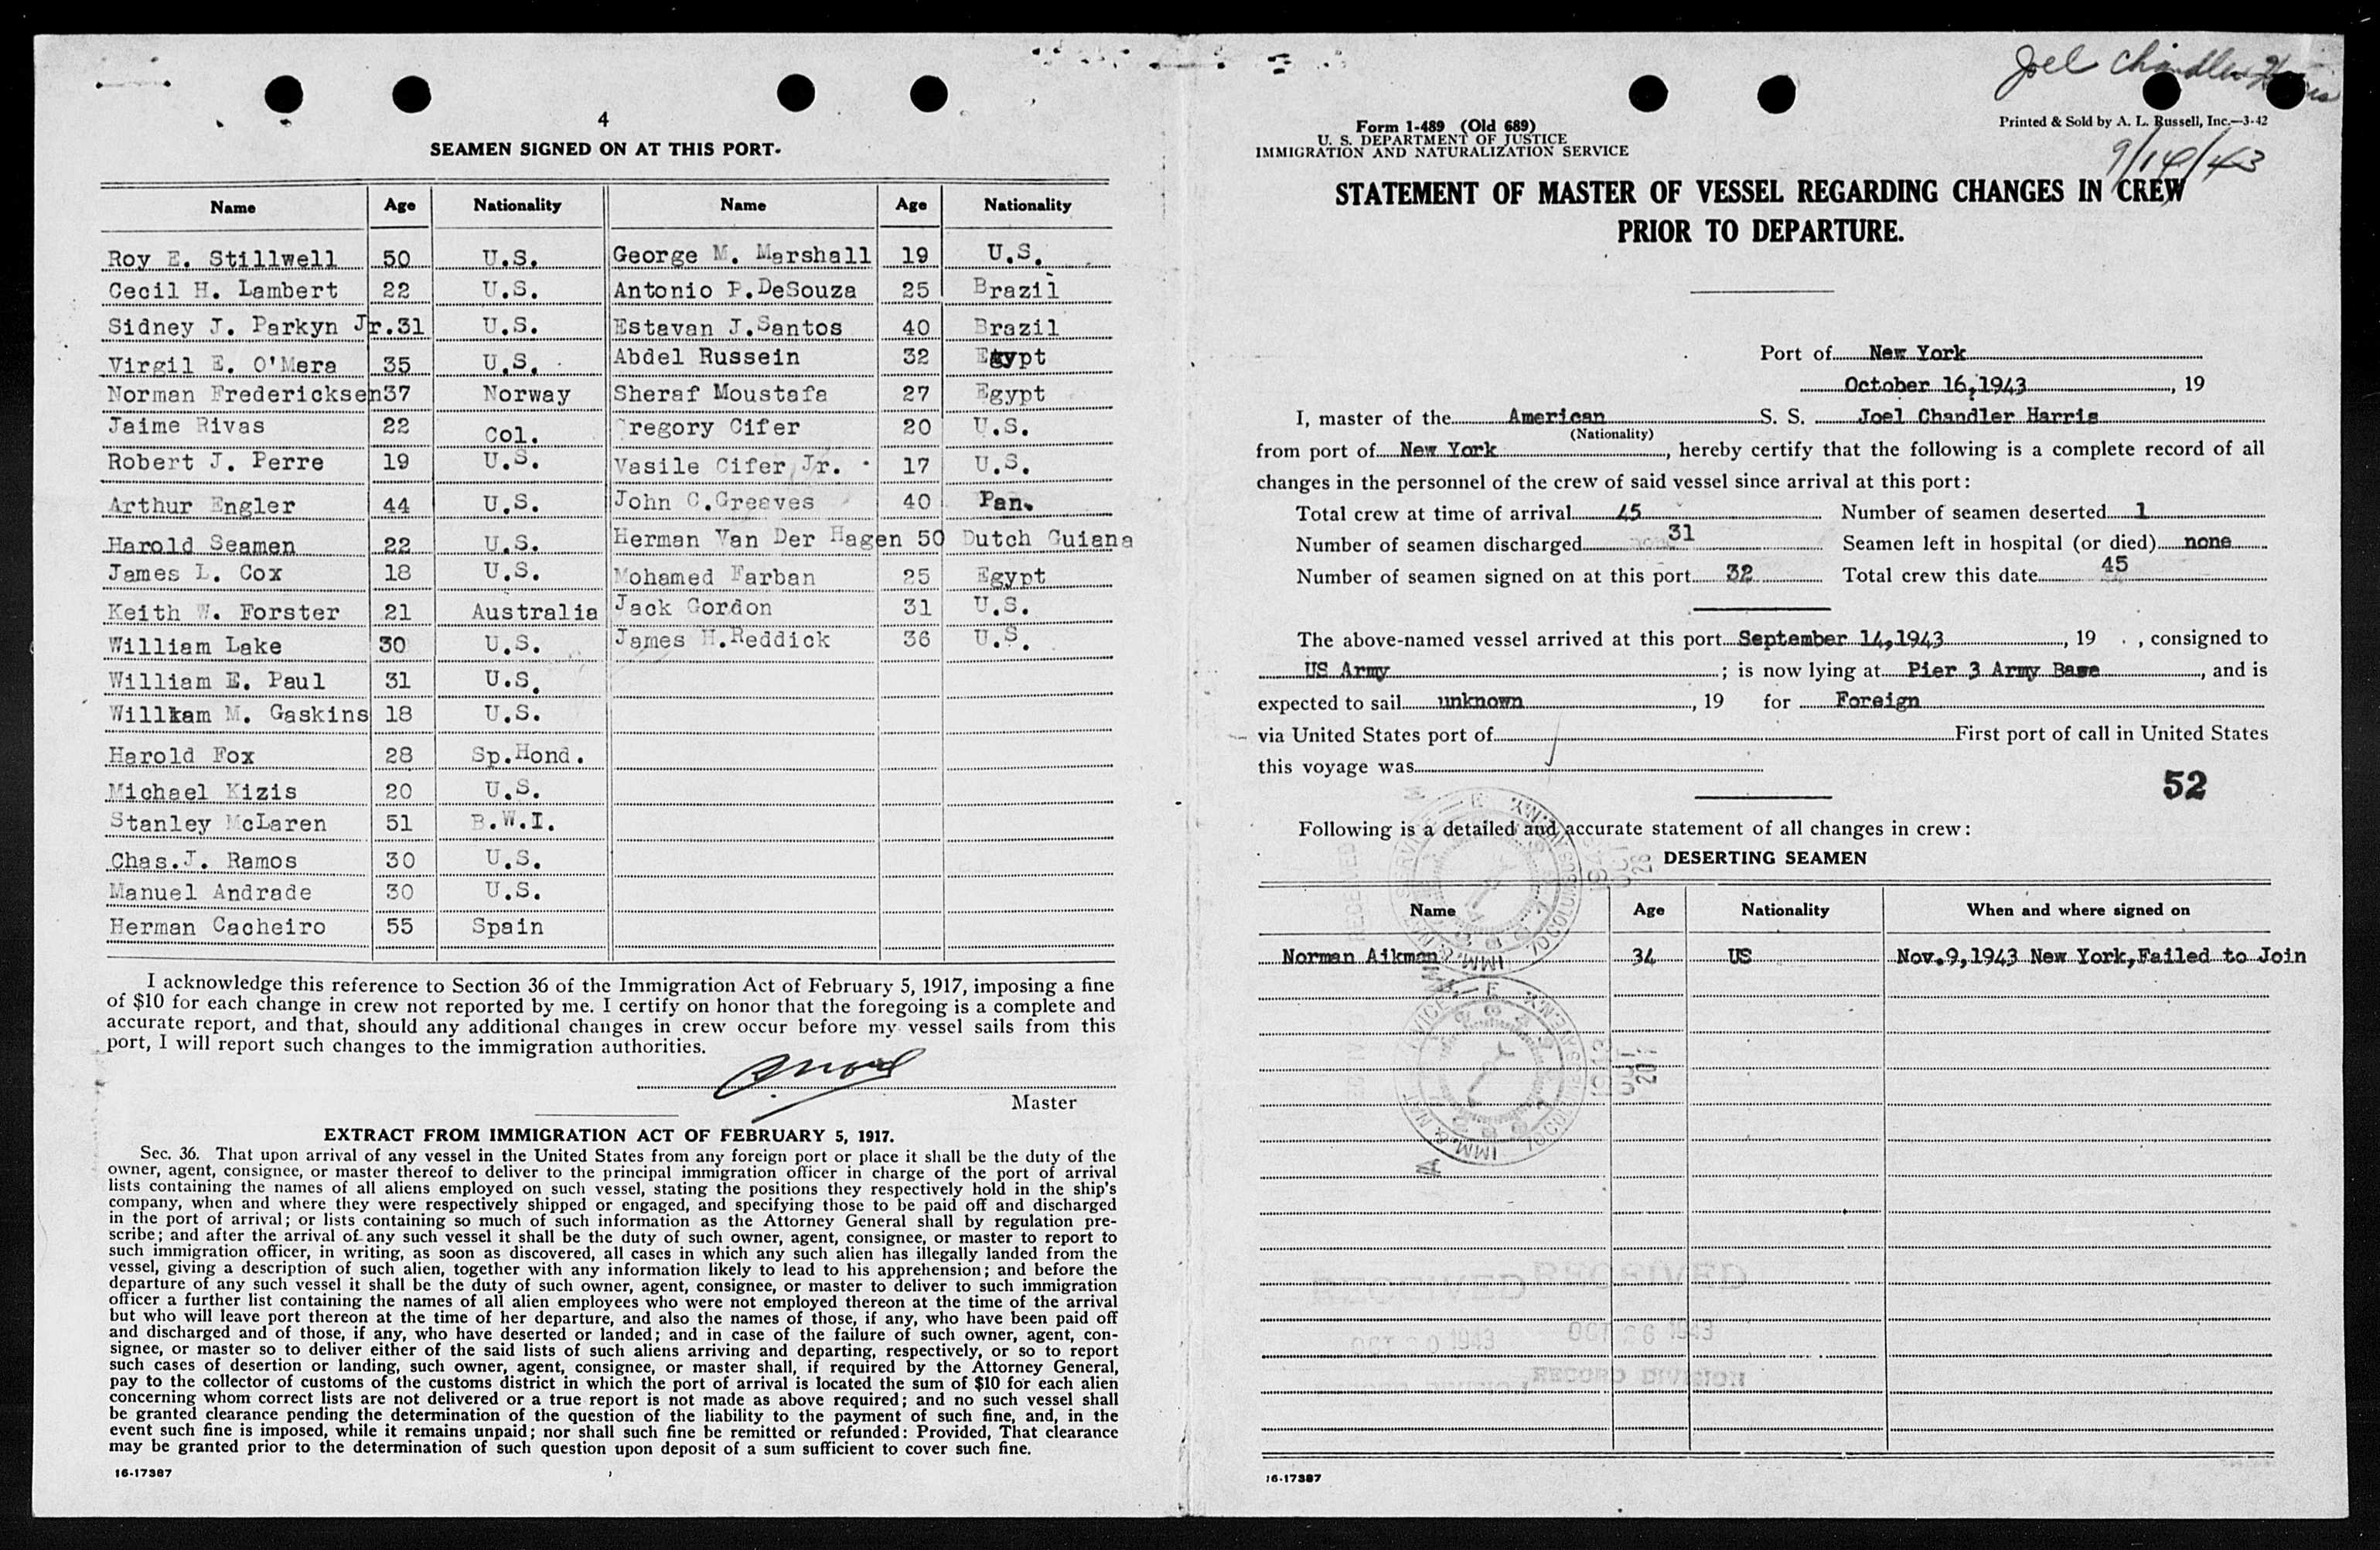 4
SEAMEN SIGNED ON AT THIS PORT.
Name Age Nationality Name Age Nationality
Roy E. Stillwell 50 U.S. George M. Marshall 19 U.S.
Cecil H. Lambert 22 U.S. Antonio P.DeSouza 25 Brazil
Sidney J. Parkyn Jr. 31 U.S. Estavan J.Santos 40 Brazil
Virgil E. O'Mera 35 U.S. Abdel Russein 32 Egypt
Norman Fredericksen 37 Norway Sheraf Moustafa 27 Egypt
Jaime Rivas 22 Col. Gregory Cifer 20 U.S.
Robert J. Perre 19 U.S. Vasile Cifer Jr. 17 U.S.
Arthur Engler 44 U.S. John C.Greaves 40 Pan.
Harold Seamen 22 U.S. Herman Van Der Hagen 50 Dutch Guiana
James L. Cox 18 U.S. Mohamed Farban 25 Egypt
Keith W. Forster 21 Australia Jack Gordon 31 U.S.
William Lake 30 U.S. James H.Reddick 36 U.S.
William E. Paul 31 U.S.
William M. Gaskins 18 U.S.
Harold Fox 28 Sp.Hond.
Michael Kizis 20 U.S.
Stanley McLaren 51 B.W.I.
Chas.J. Ramos 30 U.S.
Manuel Andrade 30 U.S.
Herman Cacheiro 55 Spain
I acknowledge this reference to Section 36 of the Immigration Act of February 5, 1917, imposing a fine
of $10 for each change in crew not reported by me. I certify on honor that the foregoing is a complete and
accurate report, and that, should any additional changes in crew occur before my vessel sails from this
port, I will report such changes to the immigration authorities.
Master
EXTRACT FROM IMMIGRATION ACT OF FEBRUARY 5, 1917.
Sec. 36. That upon arrival of any vessel in the United States from any foreign port or place it shall be the duty of the
owner, agent, consignee, or master thereof to deliver to the principal immigration officer in charge of the port of arrival
lists containing the names of all aliens employed on such vessel, stating the positions they respectively hold in the ship's
company, when and where they were respectively shipped or engaged, and specifying those to be paid off and discharged
in the port of arrival; or lists containing so much of such information as the Attorney General shall by regulation pre-
scribe; and after the arrival of any such vessel it shall be the duty of such owner, agent, consignee, or master to report to
such immigration officer, in writing, as soon as discovered, all cases in which any such alien has illegally landed from the
vessel, giving a description of such alien, together with any information likely to lead to his apprehension; and before the
departure of any such vessel it shall be the duty of such owner, agent, consignee, or master to deliver to such immigration
officer a further list containing the names of all alien employees who were not employed thereon at the time of the arrival
but who will leave port thereon at the time of her departure, and also the names of those, if any, who have been paid off
and discharged and of those, if any, who have deserted or landed; and in case of the failure of such owner, agent, con-
signee, or master so to deliver either of the said lists of such aliens arriving and departing, respectively, or so to report
such cases of desertion or landing, such owner, agent, consignee, or master shall, if required by the Attorney General,
pay to the collector of customs of the customs district in which the port of arrival is located the sum of $10 for each alien
concerning whom correct lists are not delivered or a true report is not made as above required; and no such vessel shall
be granted clearance pending the determination of the question of the liability to the payment of such fine, and, in the
event such fine is imposed, while it remains unpaid; nor shall such fine be remitted or refunded: Provided, That clearance
may be granted prior to the determination of such question upon deposit of a sum sufficient to cover such fine.
16-17387
Joel Chandler Harris
Form 1-489 (Old 689)
U. S. DEPARTMENT OF JUSTICE
IMMIGRATION AND NATURALIZATION SERVICE
Printed & Sold by A. L. Russell, Inc.—3-42
9/14/43
STATEMENT OF MASTER OF VESSEL REGARDING CHANGES IN CREW
PRIOR TO DEPARTURE.
Port of New York
October 16, 1943, 19
I, master of the American S. S. Joel Chandler Harris
(Nationality)
from port of New York, hereby certify that the following is a complete record of all
changes in the personnel of the crew of said vessel since arrival at this port:
Total crew at time of arrival 45 Number of seamen deserted 1
Number of seamen discharged 31 Seamen left in hospital (or died) none
Number of seamen signed on at this port 32 Total crew this date 45
The above-named vessel arrived at this port September 14,1943, 19 , consigned to
US Army; is now lying at Pier 3 Army Base, and is
expected to sail unknown, 19 for Foreign
via United States port of First port of call in United States
this voyage was
52
Following is a detailed and accurate statement of all changes in crew:
DESERTING SEAMEN
Name Age Nationality When and where signed on
Norman Aikman 34 US Nov.9,1943 New York,Failed to Join
RECEIVED RECEIVED
OCT 20 1943 OCT 26 1943
RECORD DIVISION
16-17387